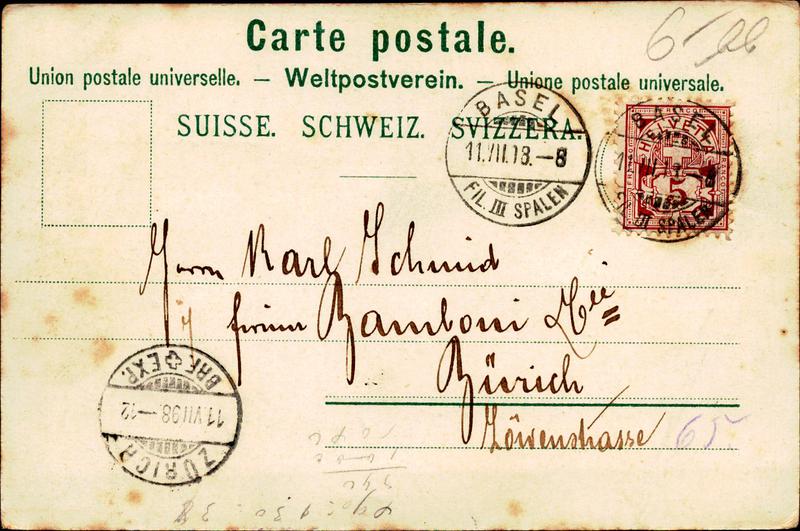 Carte postale.
Union postale universelle. — Weltpostverein. — Unione postale universale.
SUISSE. SCHWEIZ. SVIZZERA.
BASEL
11.VII.98.–8
FIL. III SPALEN
BASEL
HELVETIA
5
III SPALEN
Herrn Karl Schmid
Zürich
Löwenstrasse 65.
BRF. EXP.
11.VII.98–12
ZÜRICH